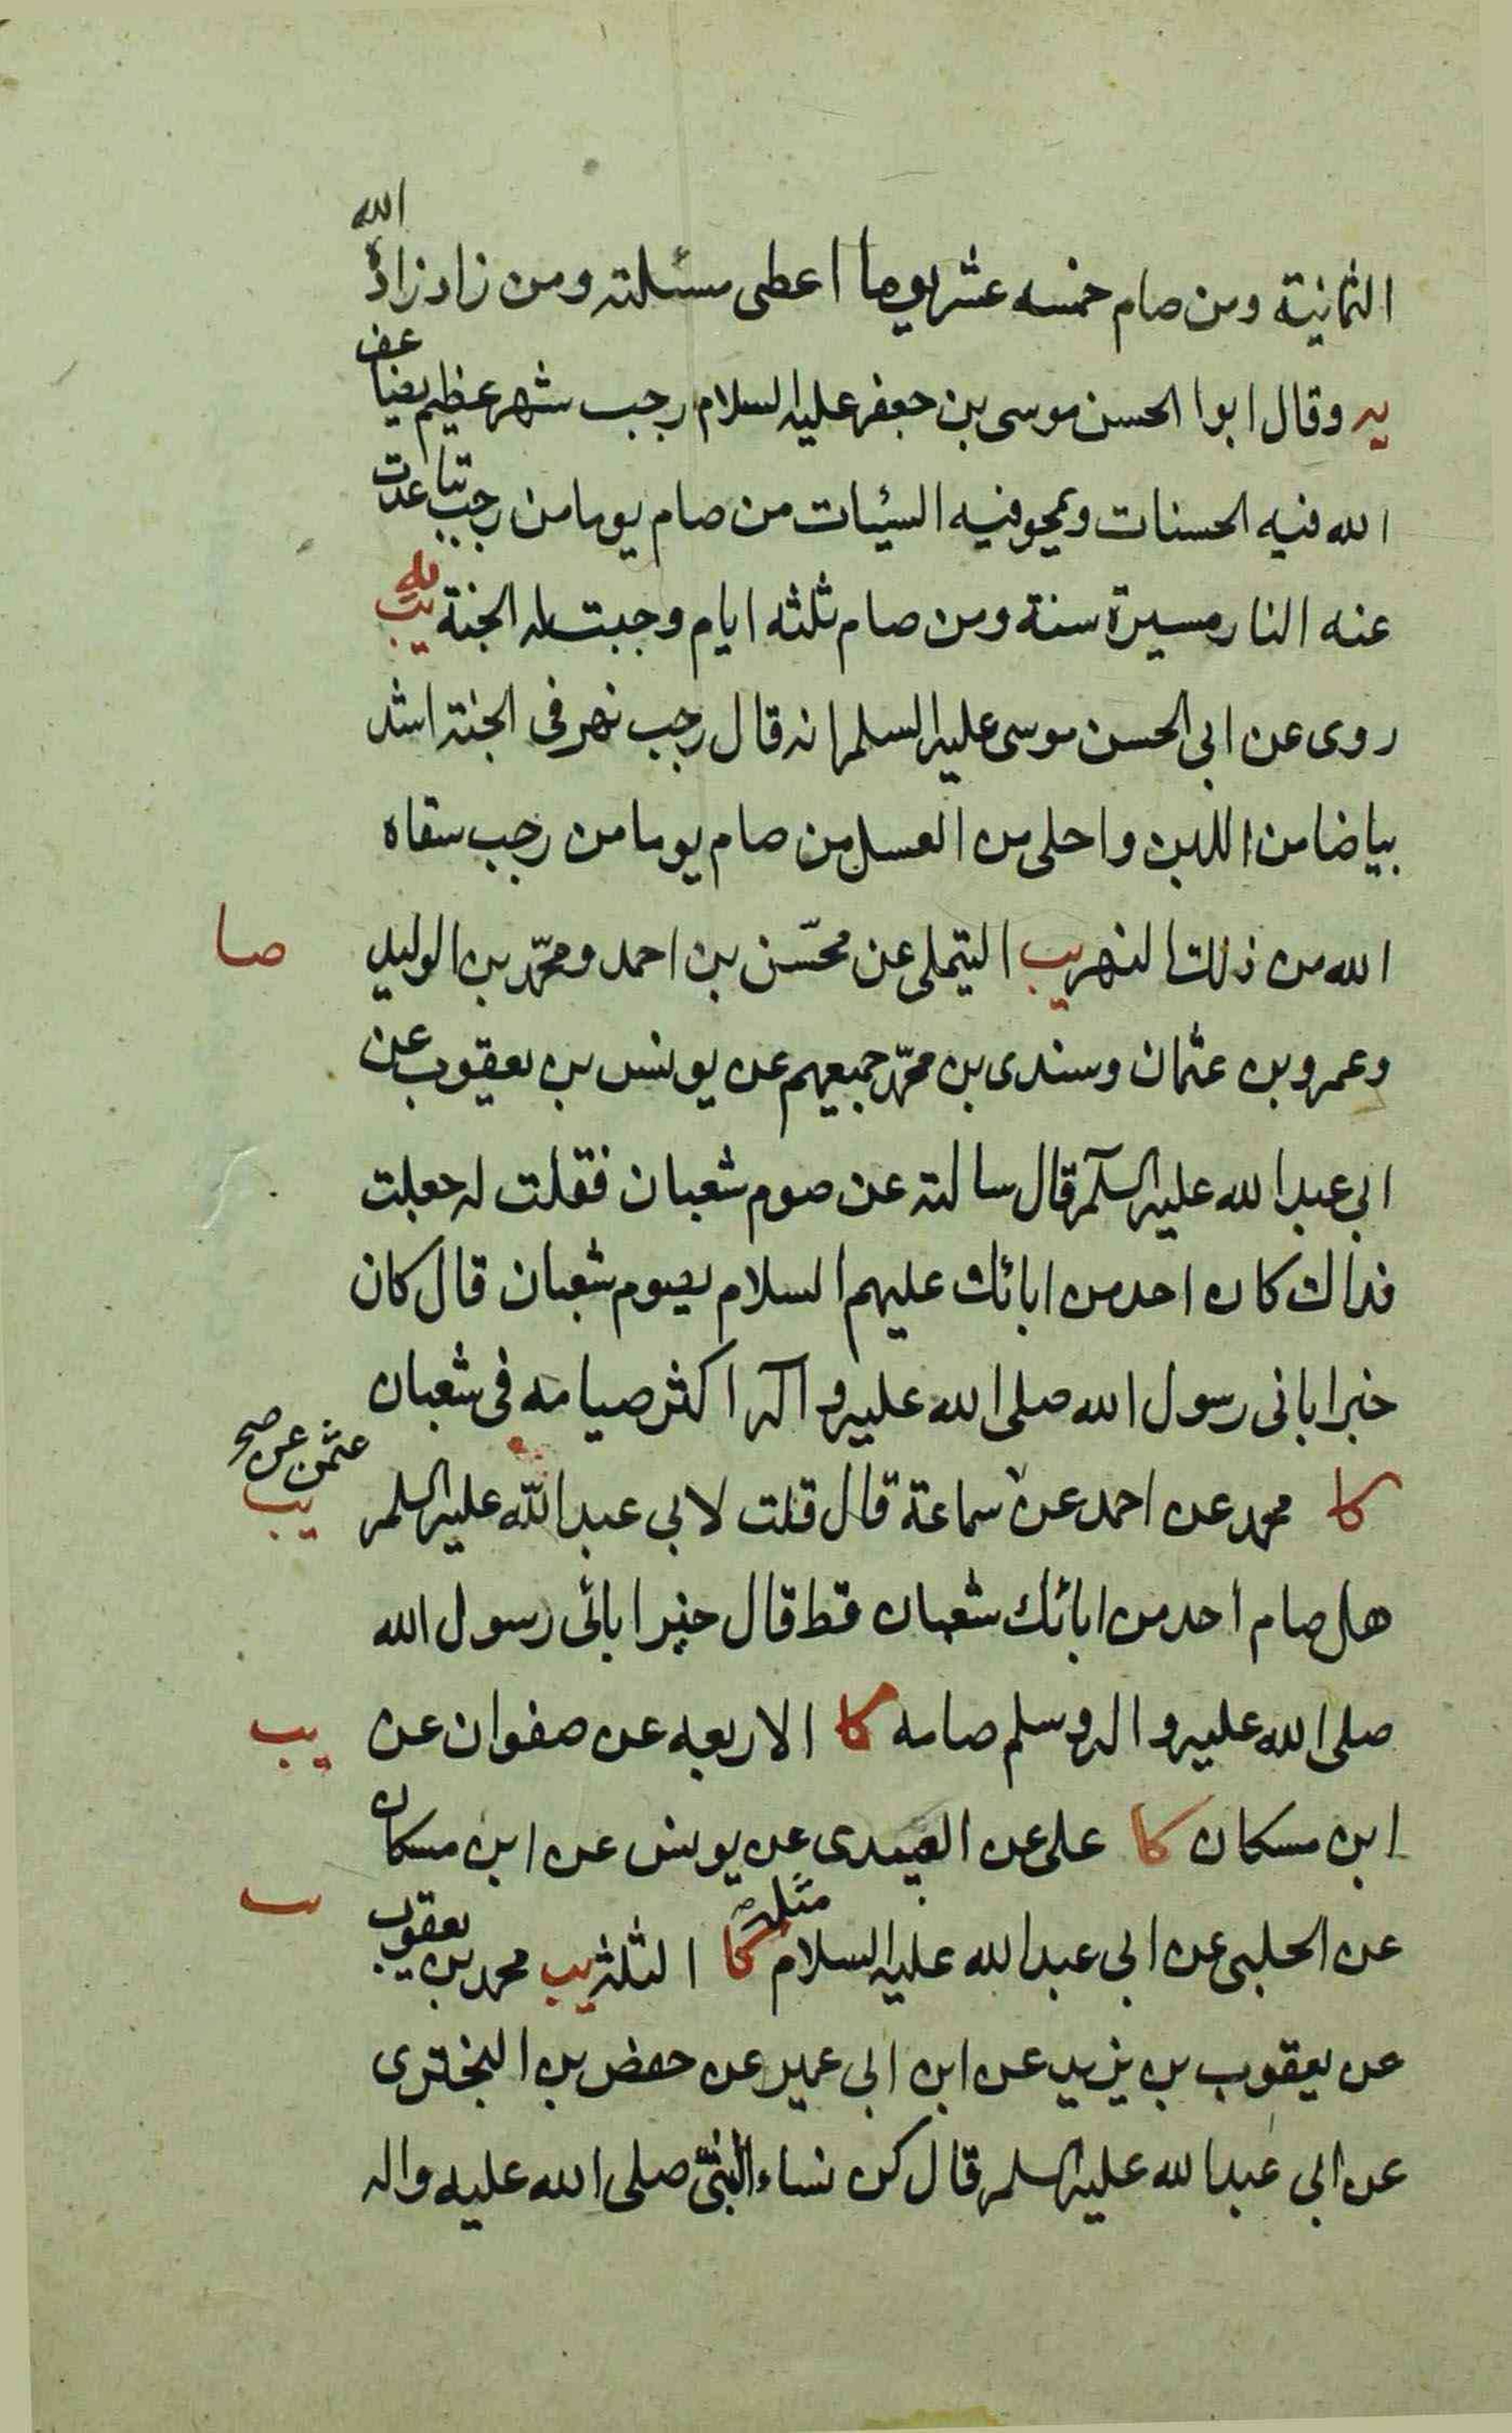 الثمانية ومن صام خمسه عشر يوما اعطى مسئلته ومن زاد زاده الله
يه وقال ابوا الحسن موسى بن جعفر عليه السلام رجب شهر عظيم يضاعف
الله فيه الحسنات ويمحو فيه السيئات من صام يوما من رجب تباعدت
عنه النار مسيرة سنة ومن صام ثلثه ايام وجبت له الجنة يب يه
روى عن ابى الحسن موسى عليه السلم انه قال رجب نهر فى الجنة اشد
بياضا من اللبن واحلى من العسل من صام يوما من رجب سقاه
الله من ذلك النهر يب التيملى عن محسّن بن احمد ومحمّد بن الوليد
صا
وعمرو بن عثمان وسندى بن محمّد جميعهم عن يونس بن يعقوب عن
ابى عبد الله عليه السلم قال سالته عن صوم شعبان فقلت له جعلت
فداك كان احد من ابائك عليهم السلام يصوم شعبان قال كان
خير ابائى رسول الله صلى الله عليه و اله اكثر صيامه فى شعبان
كا محمد عن احمد عن سماعة قال قلت لابى عبد الله عليه السلم
عثمن عن صح
يب
هل صام احد من ابائك شعبان قط قال خير ابائى رسول الله
صلى الله عليه و اله وسلم صامه كا الاربعه عن صفوان عن
يب
ابن مسكان كا على عن العبيدى عن يونس عن ابن مسكان
يب
عن الحلبى عن ابى عبد الله عليه السلام مثله كا الثلثه يب محمد بن يعقوب
عن يعقوب بن يزيد عن ابن ابى عمير عن حفض بن البخترى
عن ابى عبد الله عليه السلم قال كن نساء النبىّ صلى الله عليه واله